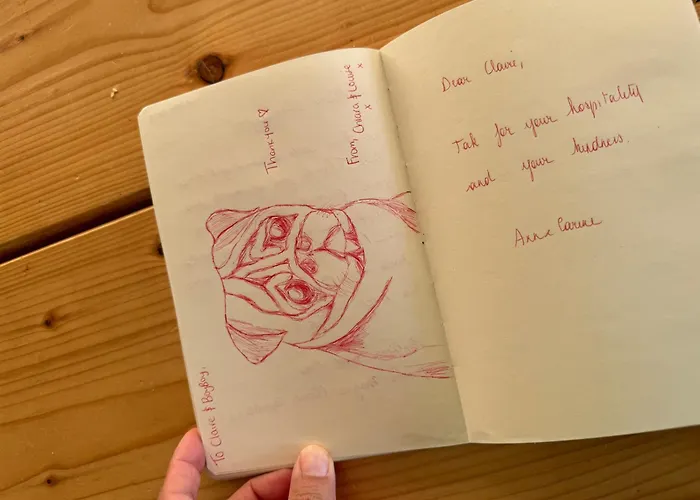 To Claire & BoyBoy,
Thank you ♡
From, Chiara & Louie
x x
Dear Claire,
Tak for your hospitality
and your kindness.
Anne Carine